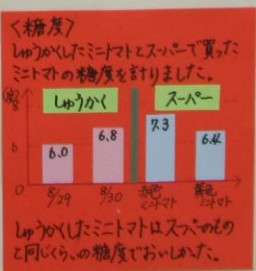 <糖度>
しゅうかくしたミニトマトとスーパーで買った
ミニトマトの糖度を計りました。
しゅうかく
スーパー
8
6
0
6.0
6.8
7.3
6.4
8/29
8/30
ミニトマト
ミニトマト
しゅうかくしたミニトマトはスーパーのもの
と同じくらいの糖度でおいしかった。